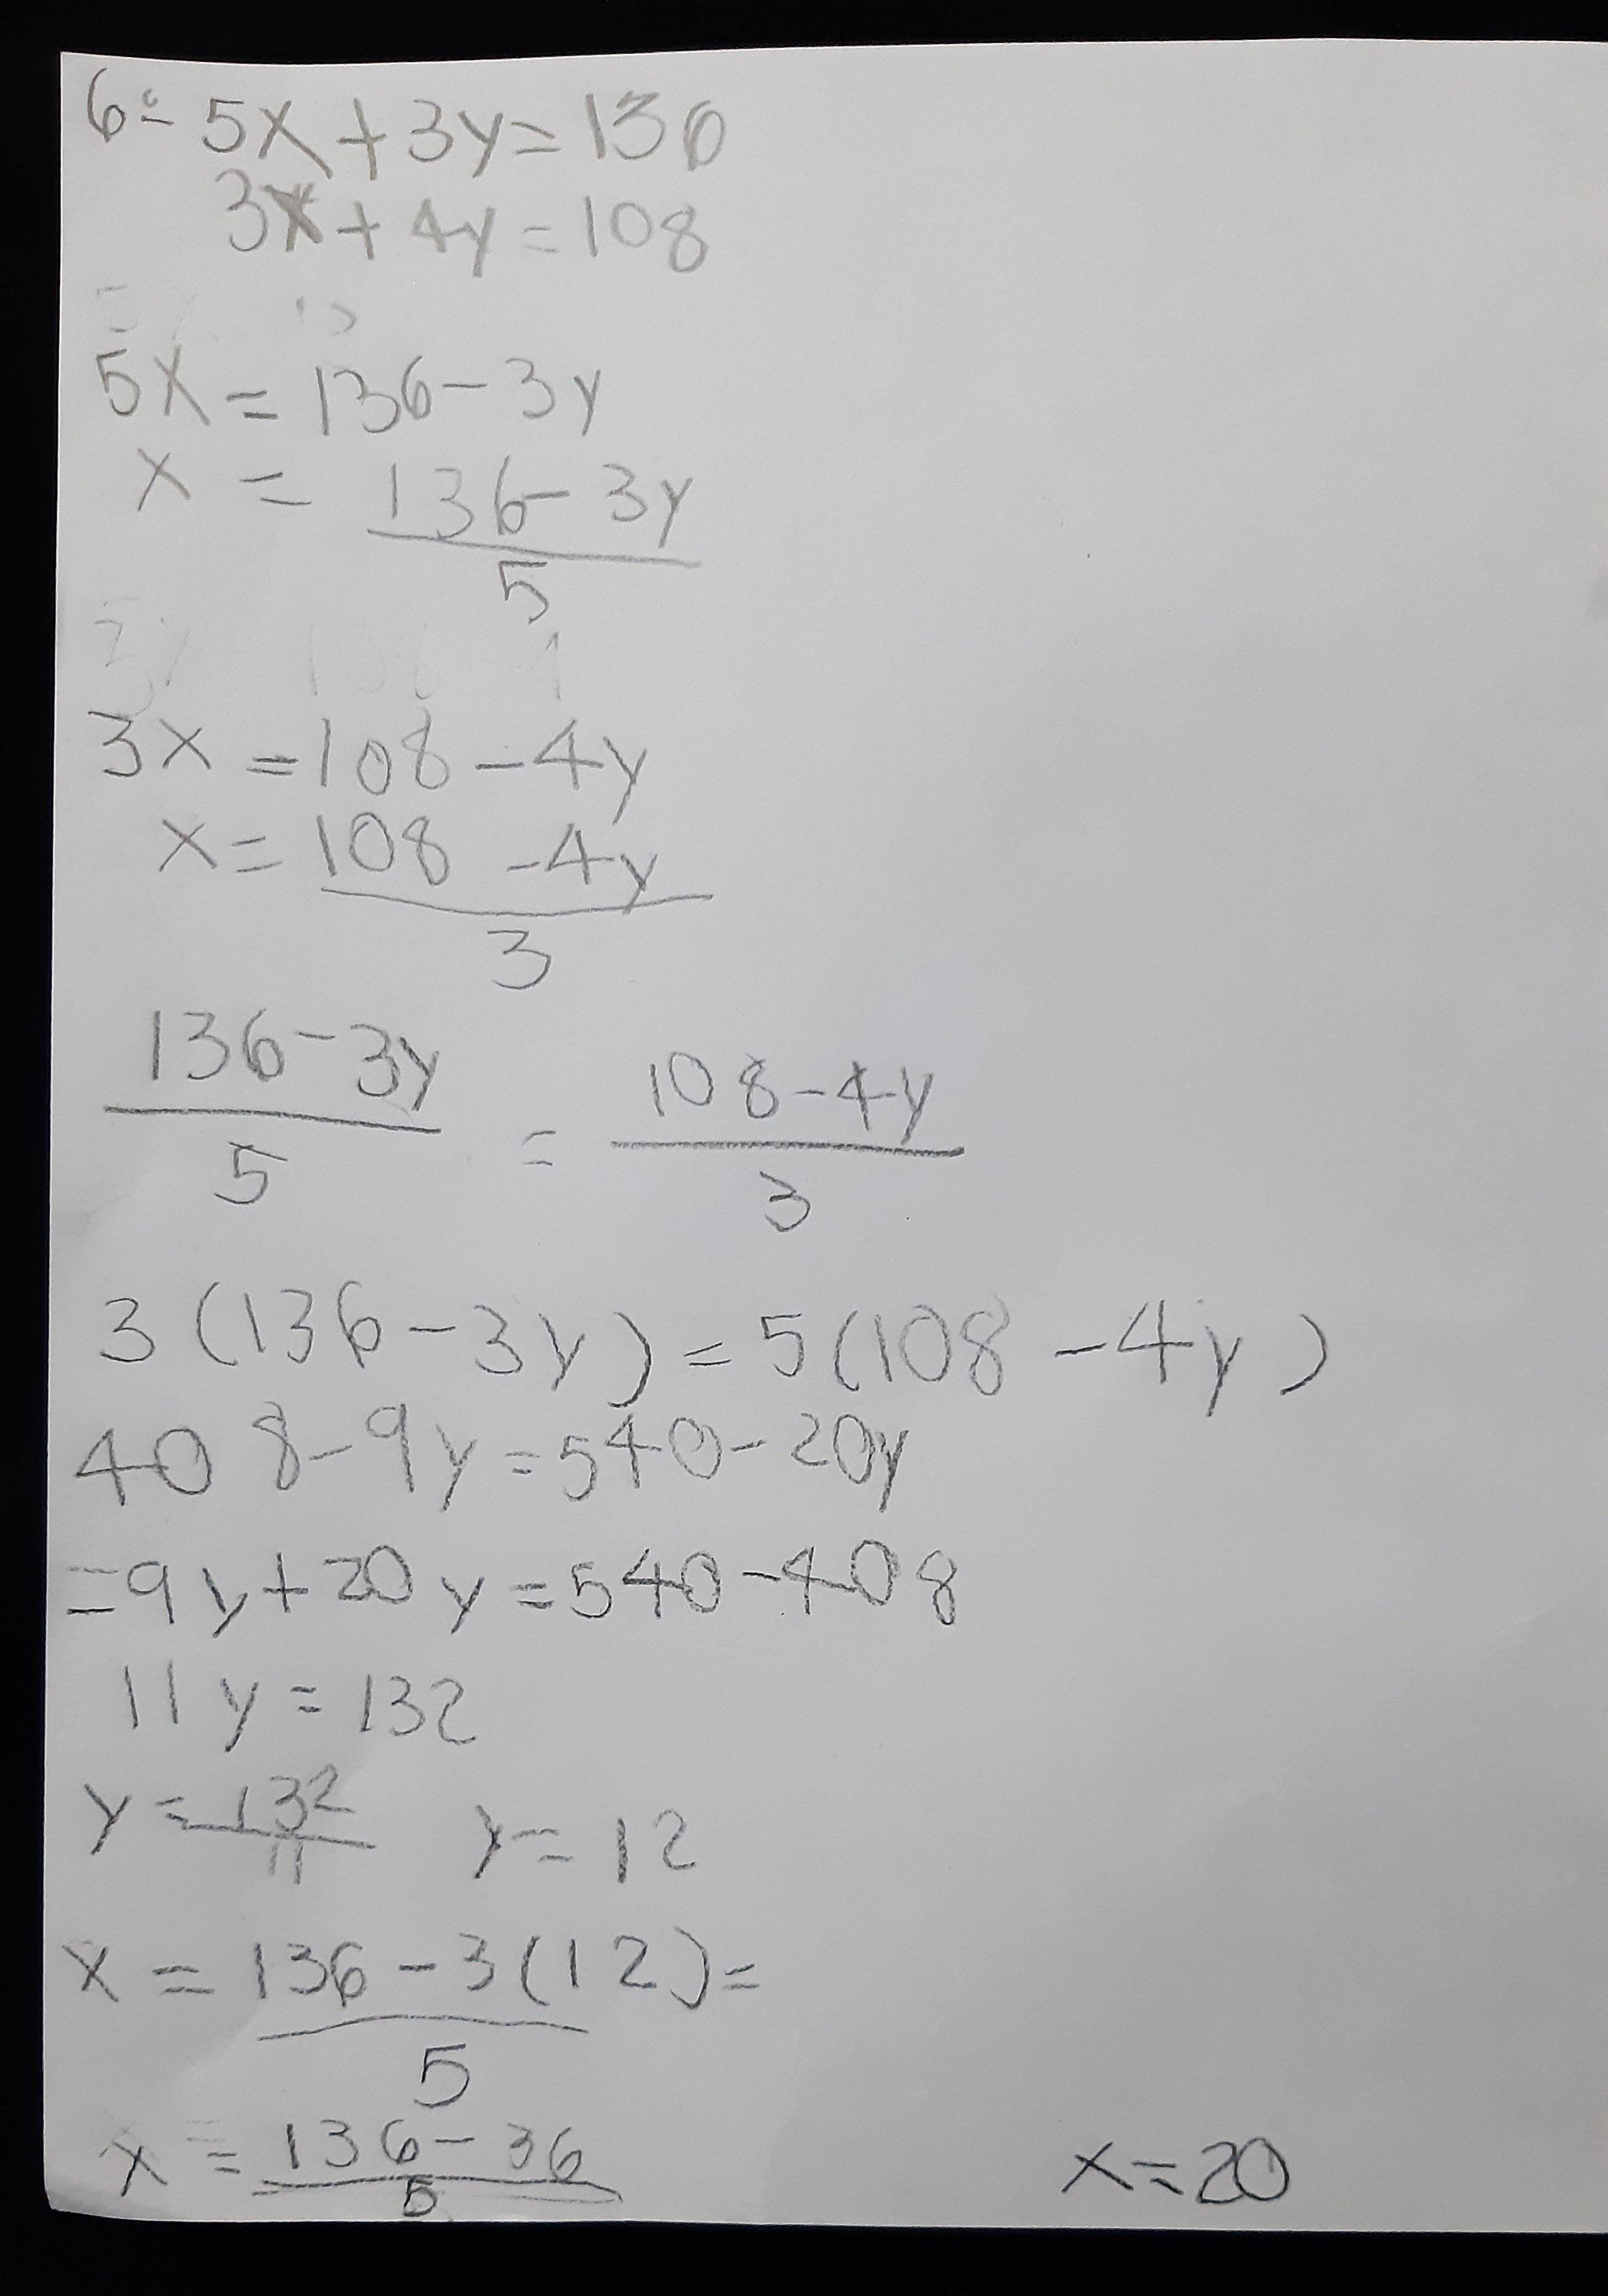 6:- 5x + 3y = 136
3x + 4y = 108
5x = 136 - 3y
x = 136 - 3y
5
3x = 108 - 4y
x = 108 - 4y
3
136 - 3y = 108 - 4y
5 3
3 (136 - 3y) = 5(108 - 4y)
408 - 9y = 540 - 20y
= 9y + 20y = 540 - 408
11y = 132
y = 132 y = 12
11
x = 136 - 3(12) =
5
x = 136 - 36 x = 20
5